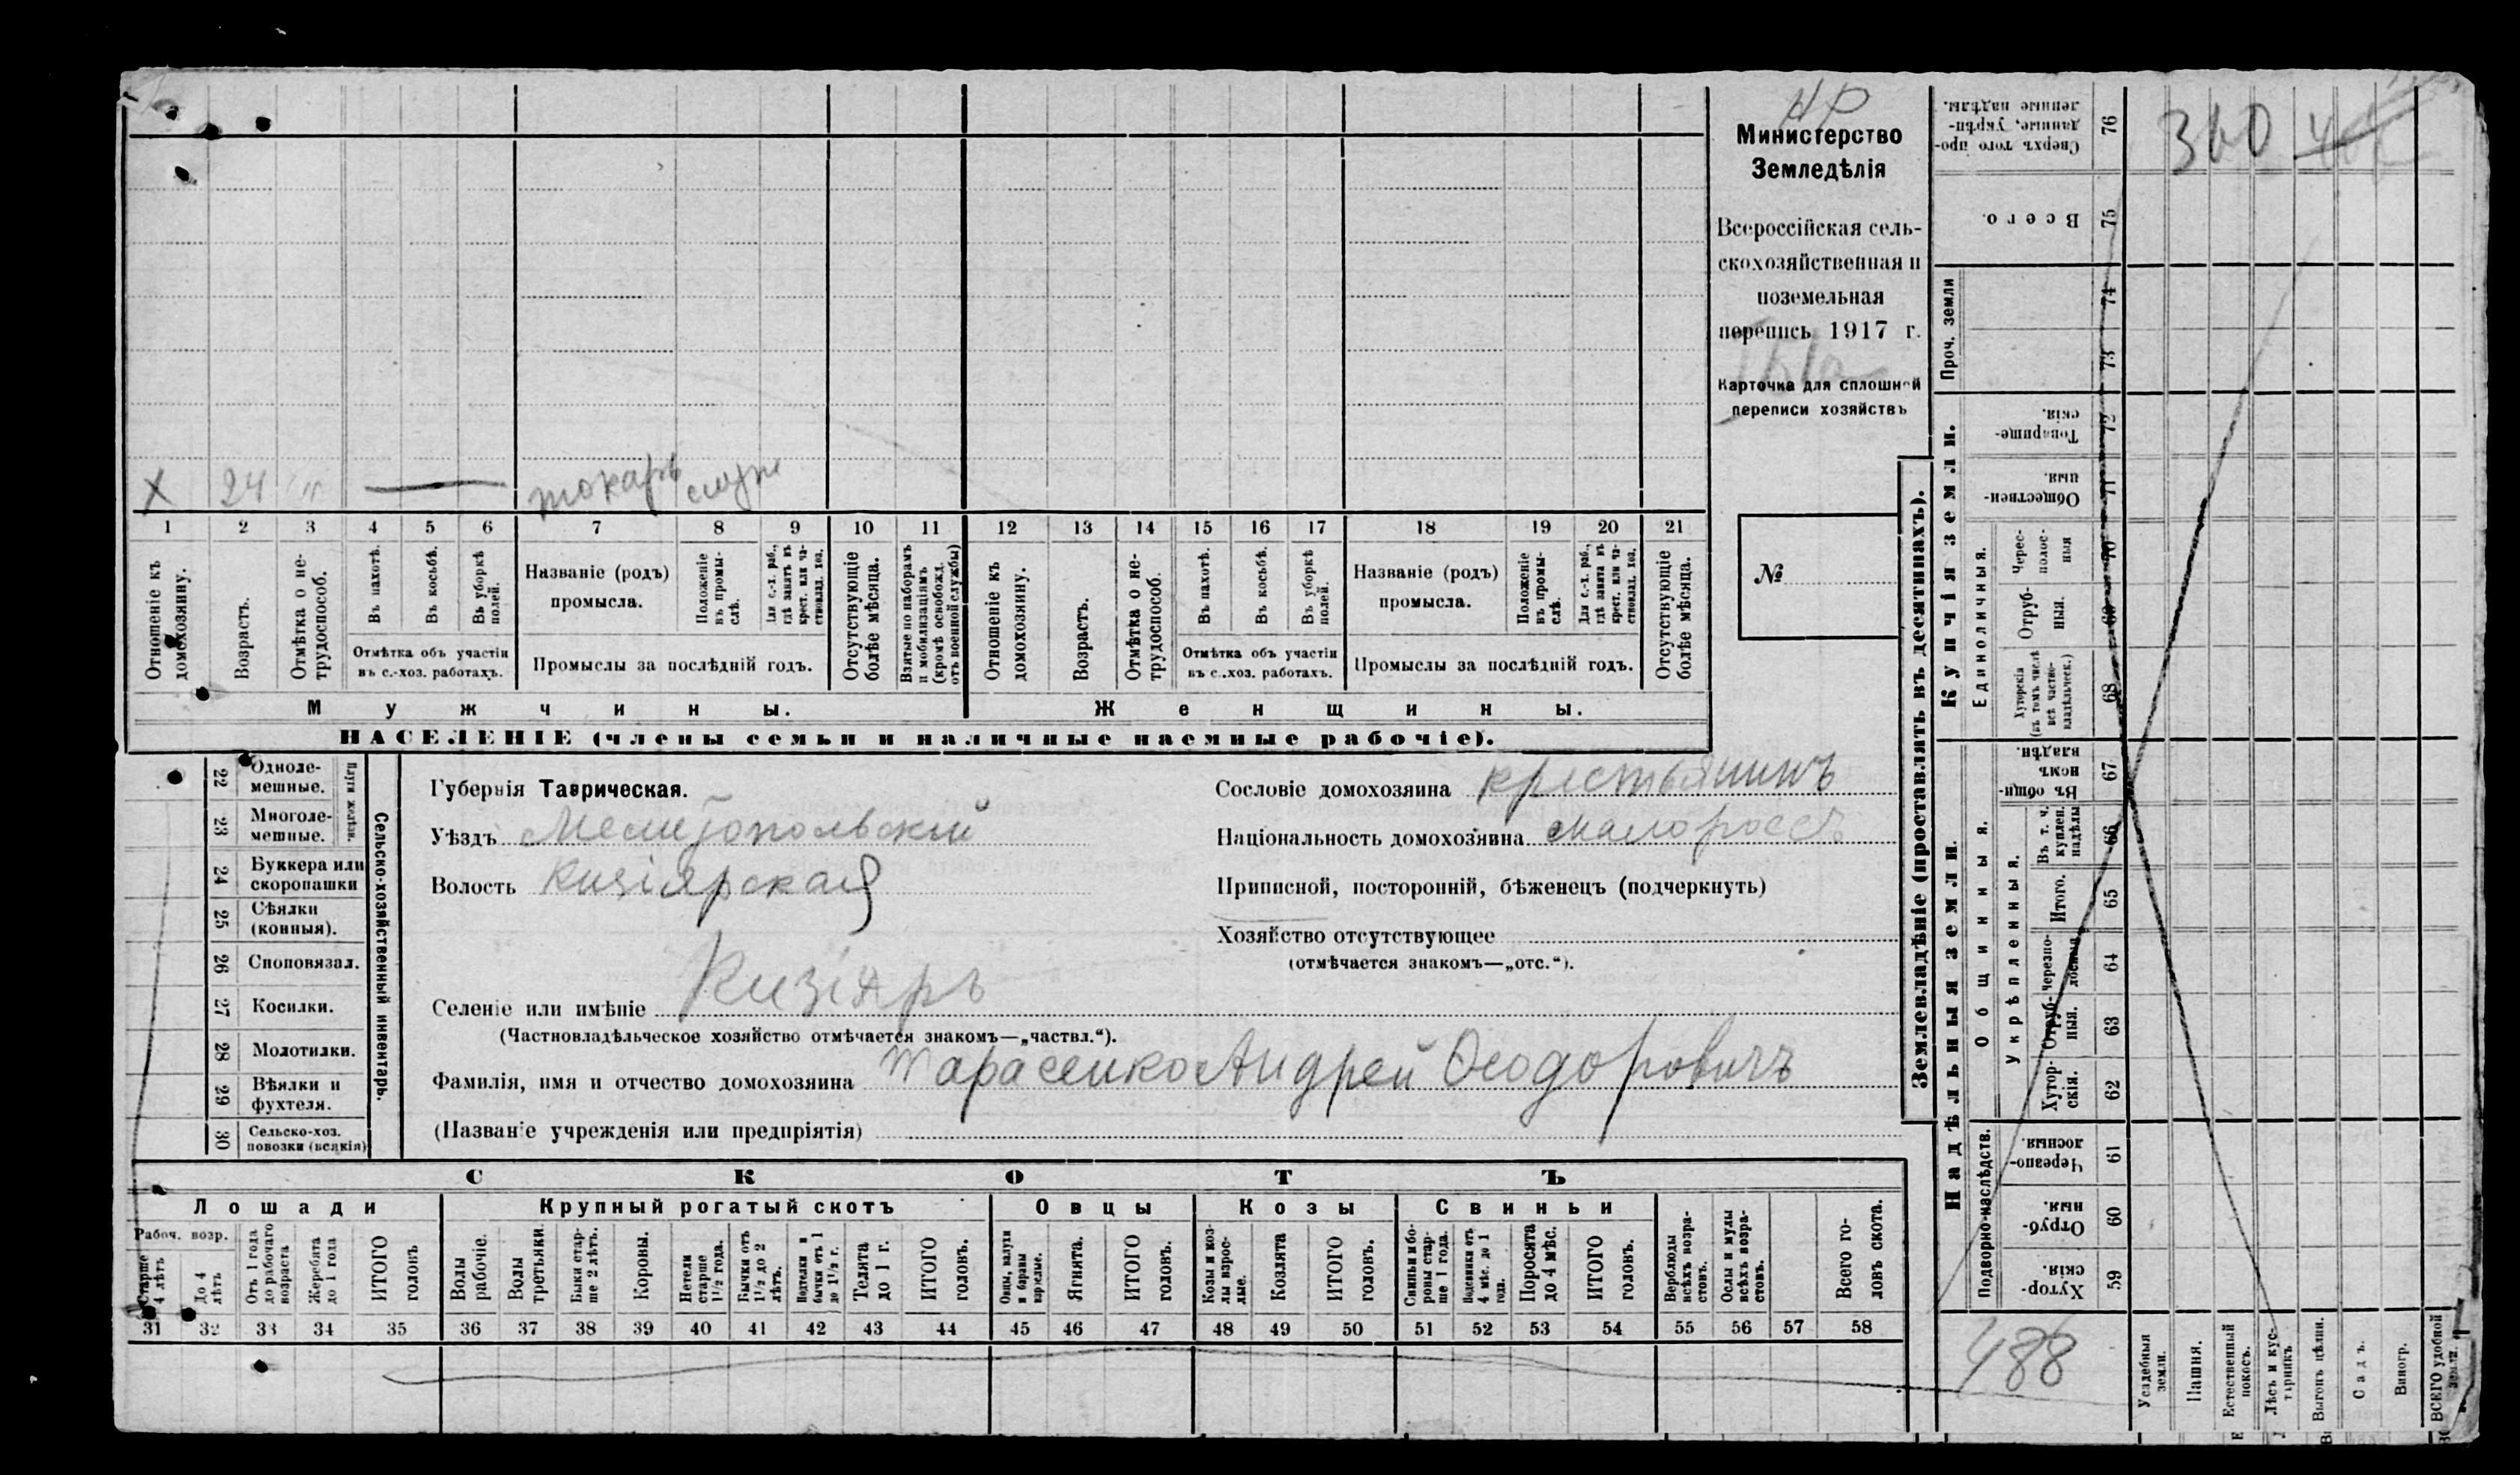 НР
Министерство
Земледѣлія
Всероссійская сель-
скохозяйственная и
поземельная
перепись 1917 г.
Карточка для сплошной
переписи хозяйствъ
№
X 24 — токарь служ
1 2 3 4 5 6 7 8 9 10 11 12 13 14 15 16 17 18 19 20 21
Отношеніе къ домохозяину.
Возрастъ.
Отмѣтка о не-
трудоспособ.
Въ пахотѣ.
Въ косьбѣ.
Въ уборкѣ полей.
Отмѣтка объ участіи
въ с.-хоз. работахъ.
Названіе (родъ)
промысла.
Положеніе
въ промы-
слѣ.
Для с.-х. раб.,
гдѣ занятъ въ
крест. или ча-
стновлад. хоз.
Промыслы за послѣдній годъ.
Отсутствующіе
болѣе мѣсяца.
Взятые по наборамъ
и мобилизаціямъ
(кромѣ освобожд.
отъ военной службы)
Отношеніе къ
домохозяину.
Возрастъ.
Отмѣтка о не-
трудоспособ.
Въ пахотѣ.
Въ косьбѣ.
Въ уборкѣ
полей.
Отмѣтка объ участіи
въ с.-хоз. работахъ.
Названіе (родъ)
промысла.
Положеніе
въ промы-
слѣ.
Для с.-х. раб.,
гдѣ занята въ
крест. или ча-
стновлад. хоз.
Промыслы за послѣдній годъ.
Отсутствующіе
болѣе мѣсяца.
Мужчины.
Женщины.
НАСЕЛЕНІЕ (члены семьи и наличные наемные рабочіе).
Сельско-хозяйственный инвентарь.
Плуги желѣзн.
22 Одноле-
мешные.
23 Многоле-
мешные.
24 Буккера или
скоропашки
25 Сѣялки
(конныя).
26 Сноповязал.
27 Косилки.
28 Молотилки.
29 Вѣялки и
фухтеля.
30 Сельско-хоз.
повозки (всякія)
Губернія Таврическая.
Уѣздъ Мелитопольскій
Волость Кизіярская
Селеніе или имѣніе Кизіяръ
(Частновладѣльческое хозяйство отмѣчается знакомъ—„частвл.“).
Фамилія, имя и отчество домохозяина Тарасенко Андрей Ѳеодоровичъ
(Названіе учрежденія или предпріятія)
Сословіе домохозяина крестьянинъ
Національность домохозяина малороссъ
Приписной, посторонній, бѣженецъ (подчеркнуть)
Хозяйство отсутствующее
(отмѣчается знакомъ—„отс.“).
СКОТЪ
Лошади
Крупный рогатый скотъ
Овцы
Козы
Свиньи
Рабоч. возр.
Старше
4 лѣтъ
До 4
лѣтъ
Отъ 1 года
до рабочаго
возраста
Жеребята
до 1 года
ИТОГО
головъ
Волы
рабочіе.
Волы
третьяки.
Быки стар-
ше 2 лѣтъ.
Коровы.
Нетели
старше
1½ года.
Бычки отъ
1½ до 2
лѣтъ.
Подтелки и
бычки отъ 1
до 1½ г.
Телята
до 1 г.
ИТОГО
головъ.
Овцы, валухи
и бараны
взрослые.
Ягнята.
ИТОГО
головъ.
Козы и коз-
лы взрос-
лые.
Козлята
ИТОГО
головъ.
Свиньи и бо-
ровы стар-
ше 1 года.
Подсвинки отъ
4 мѣс. до 1
года.
Поросята
до 4 мѣс.
ИТОГО
головъ.
Верблюды
всѣхъ возра-
стовъ.
Ослы и мулы
всѣхъ возра-
стовъ.
Всего го-
ловъ скота.
31 32 33 34 35 36 37 38 39 40 41 42 43 44 45 46 47 48 49 50 51 52 53 54 55 56 57 58
Землевладѣніе (проставлять въ десятинахъ).
Надѣльныя земли.
Купчія земли.
Проч. земли
Подворно-наслѣдств.
Общинныя.
Укрѣпленныя.
Единоличныя.
Сверхъ того про-
данные, укрѣп-
ленные надѣлы. 76
Всего. 75
74
73
Товарище-
скія. 72
Обществен-
ныя. 71
Черес-
полос-
ныя 70
Отруб-
ныя. 69
Хуторскія
(въ томъ числѣ
всѣ частно-
владѣльческ.) 68
Въ общин-
номъ
владѣн. 67
Въ т. ч.
куплен.
надѣлы 66
Итого. 65
Черезпо-
лосныя 64
Отруб-
ныя. 63
Хутор-
скія. 62
Черезпо-
лосныя. 61
Отруб-
ныя. 60
Хутор-
скія. 59
360
488
Усадебныя
земли.
Пашня.
Естественный
покосъ.
Лѣсъ и кус-
тарникъ
Выгонъ цѣлин.
Садъ.
Виногр.
ВСЕГО удобной
земли.